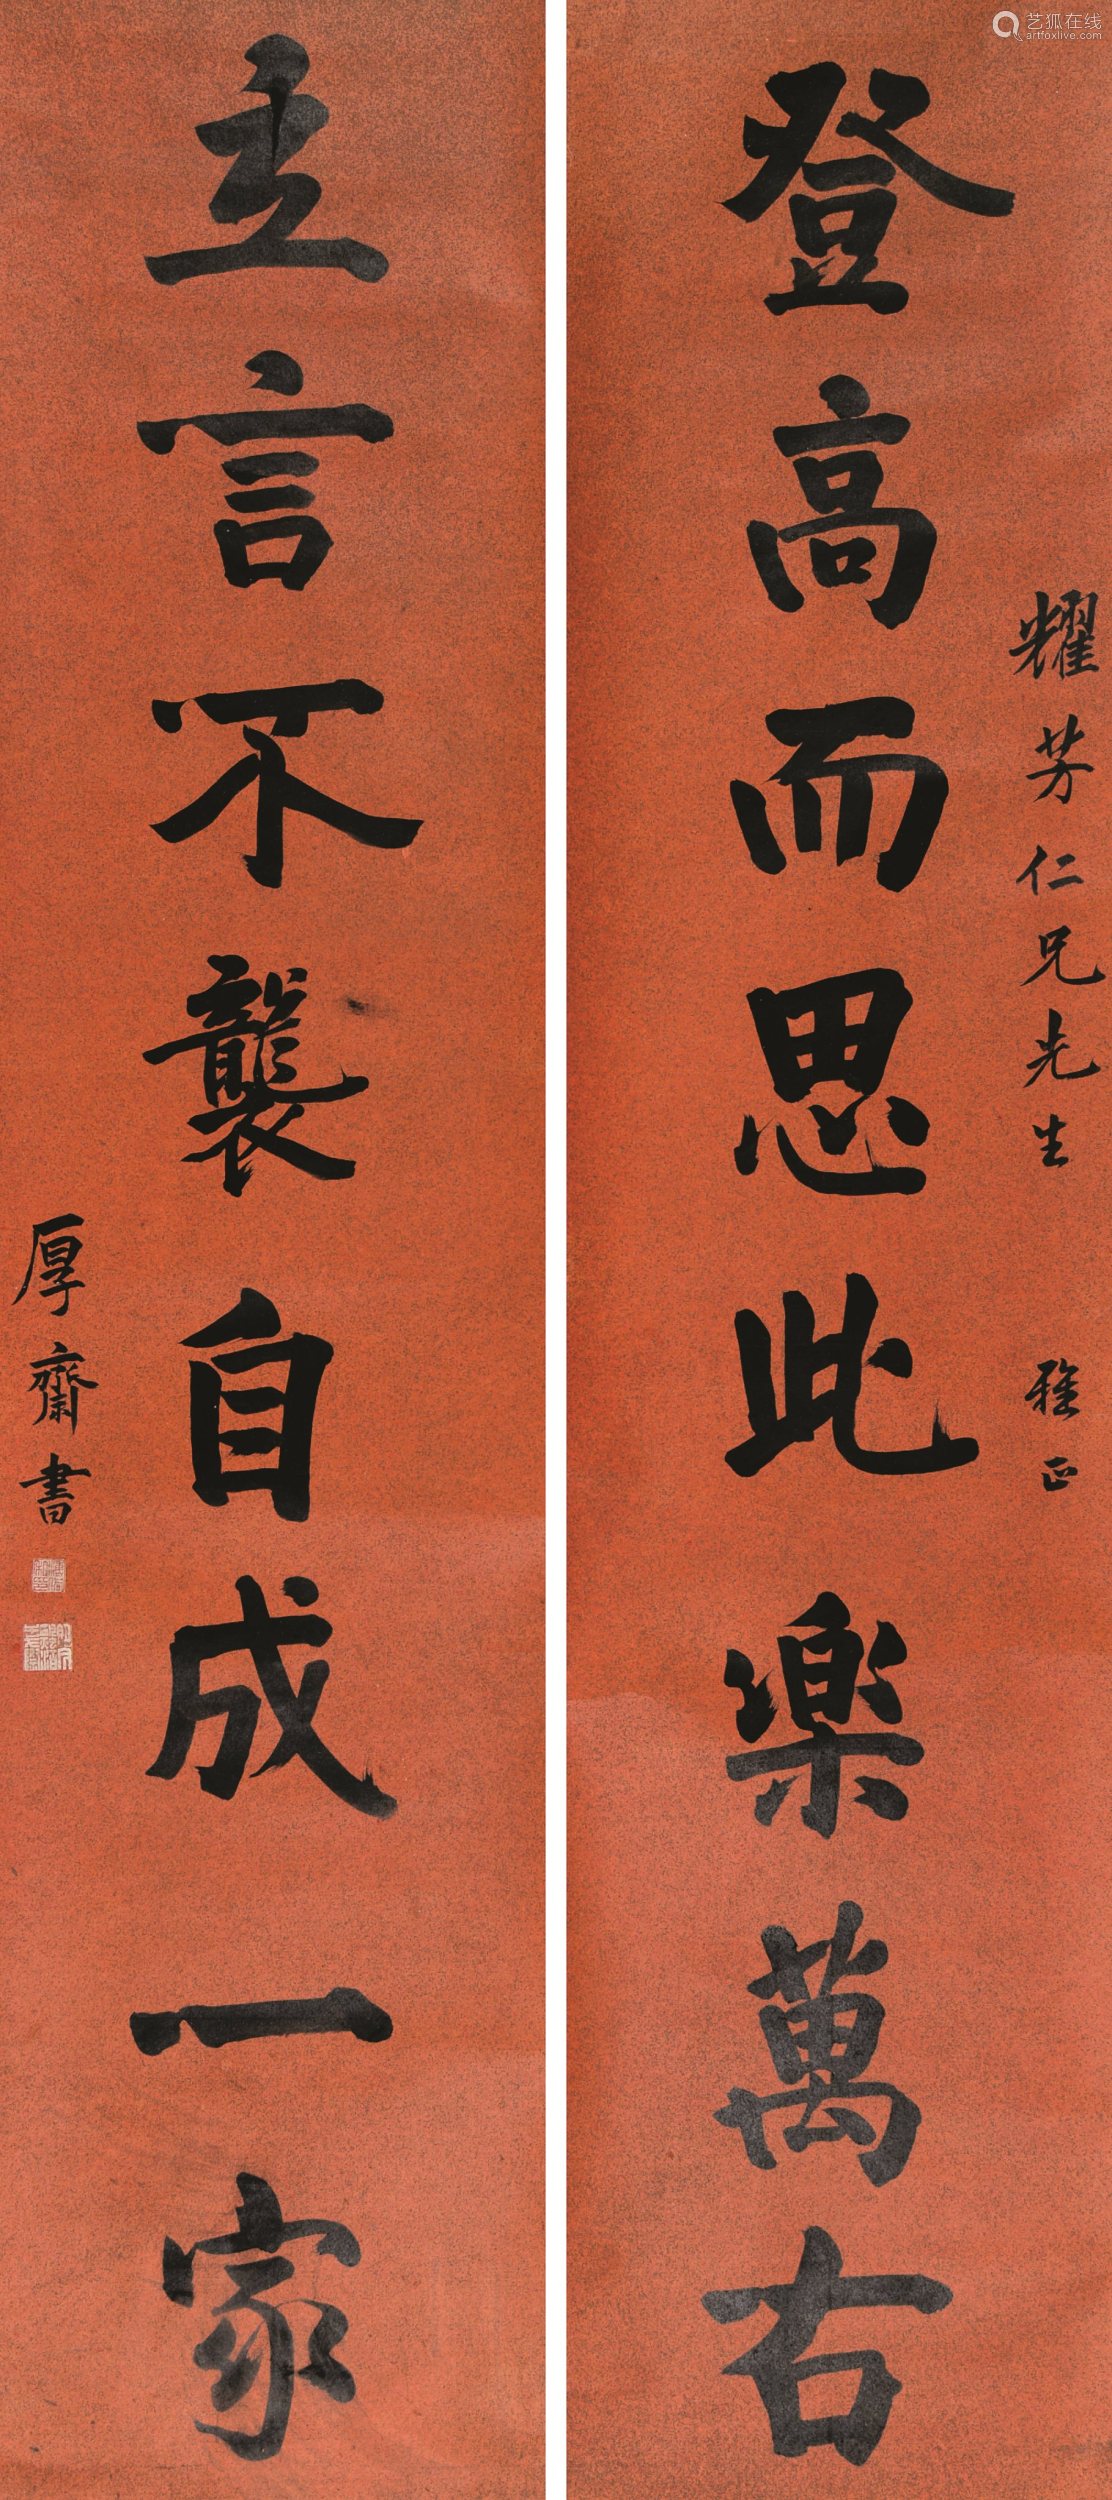 艺狐在线
artfoxlive.com
耀芳仁兄先生 雅正
登高而思此樂萬右
立言不襲自成一家
厚齋書